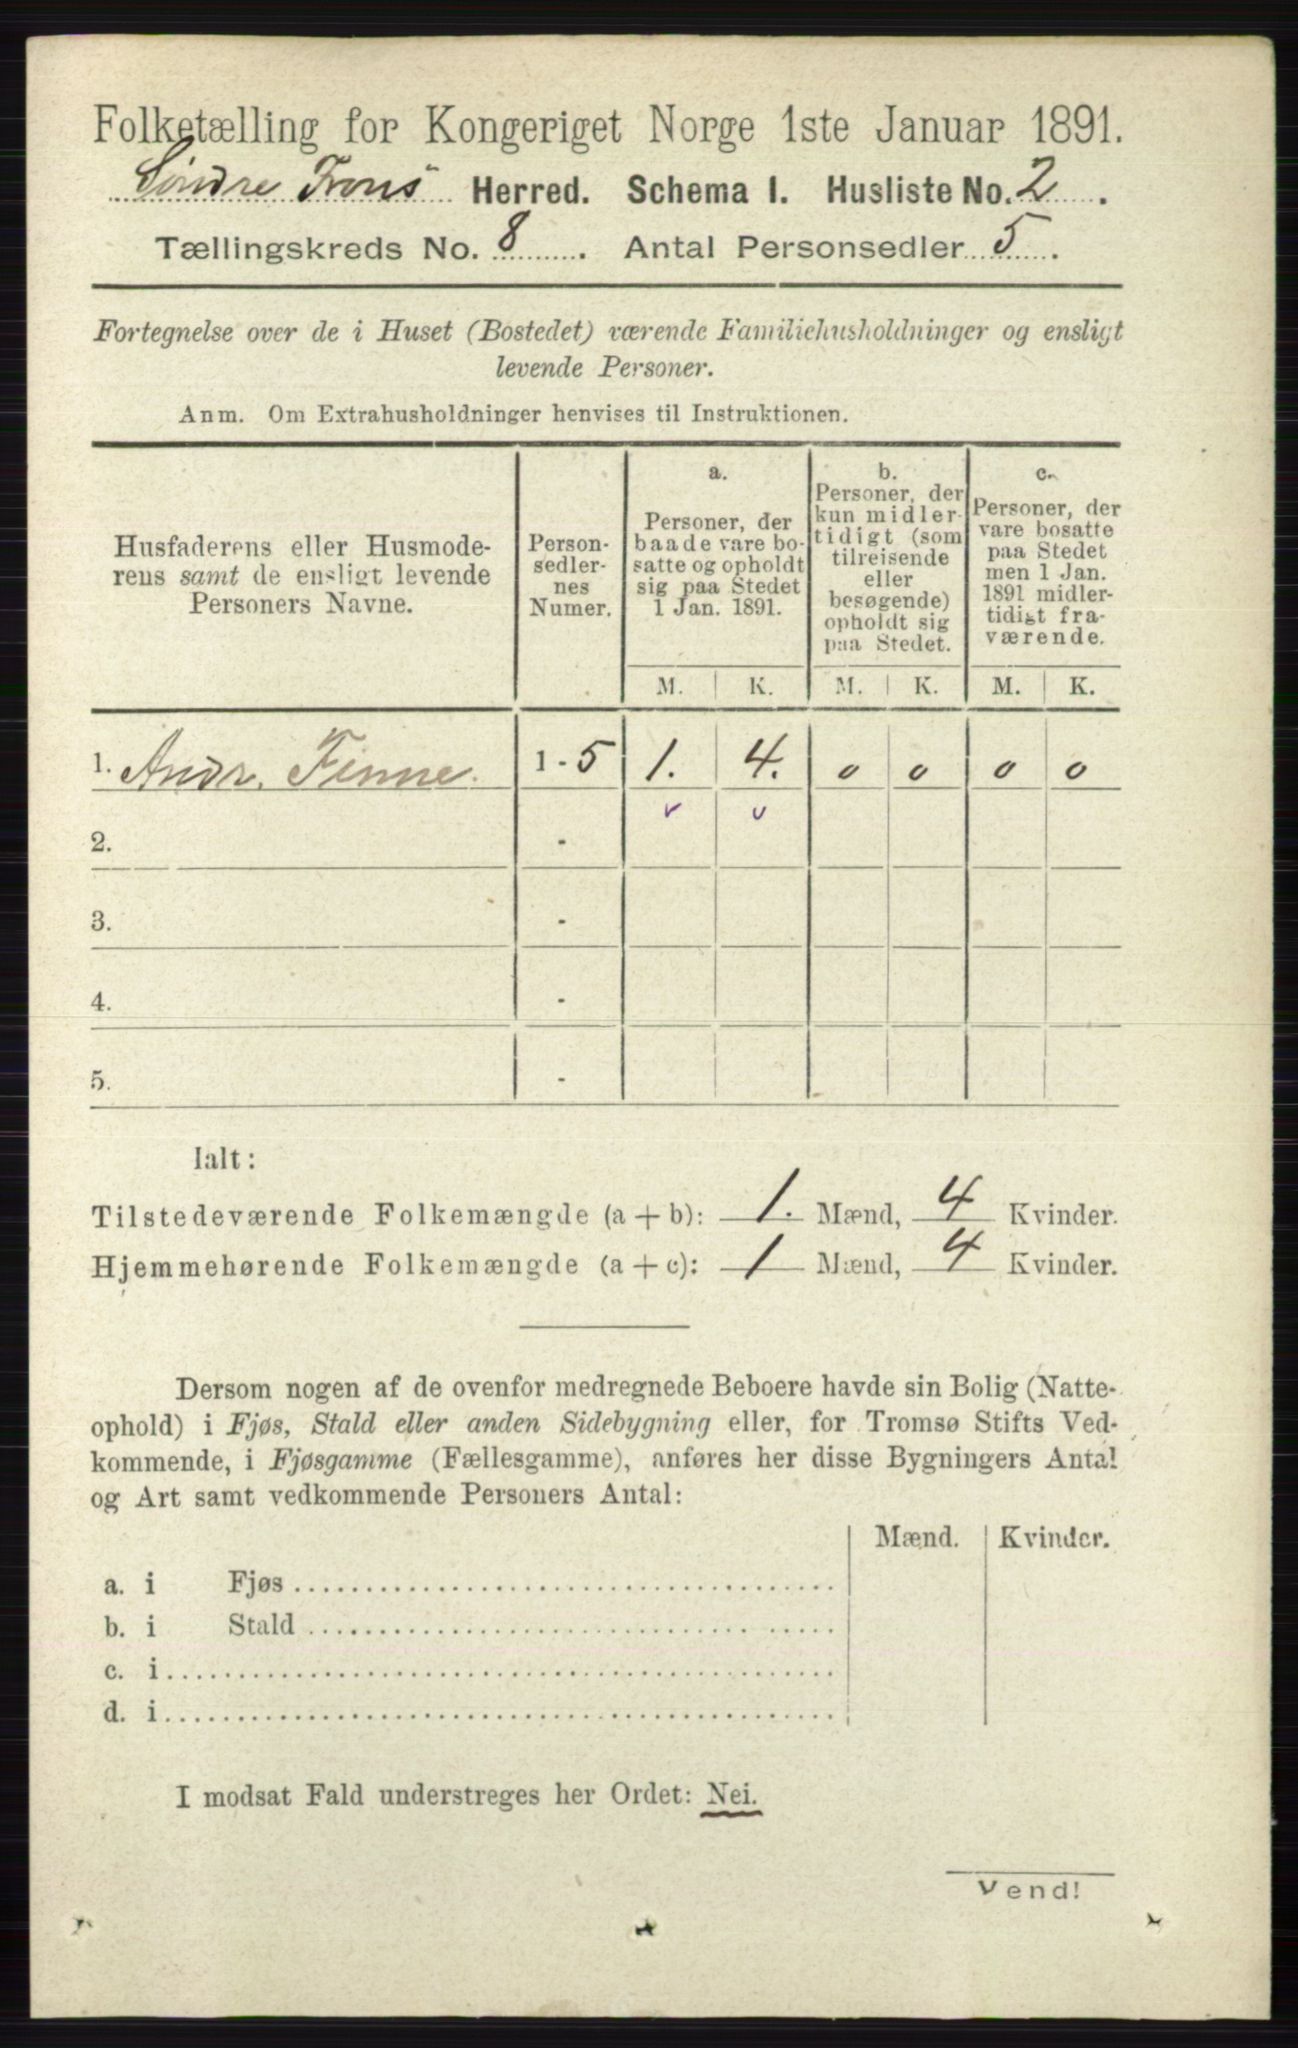 Folketælling for Kongeriget Norge 1ste Januar 1891.
Söndre Frons Herred. Schema I. Husliste No. 2.
Tællingskreds No. 8. Antal Personsedler 5.
Fortegnelse over de i Huset (Bostedet) værende Familiehusholdninger og ensligt
levende Personer.
Anm. Om Extrahusholdninger henvises til Instruktionen.
Husfaderens eller Husmode-
rens samt de ensligt levende
Personers Navne.
Person-
sedler-
nes
Numer.
a.
Personer, der
baade vare bo-
satte og opholdt
sig paa Stedet
1 Jan. 1891.
b.
Personer, der
kun midler-
tidigt (som
tilreisende
eller
besøgende)
opholdt sig
paa Stedet.
c.
Personer, der
vare bosatte
paa Stedet
men 1 Jan.
1891 midler-
tidigt fra-
værende.
M. K. M. K. M. K.
1. Andr. Finne. 1 - 5 1. 4. 0 0 0 0
2. -
3. -
4. -
5. -
Ialt:
Tilstedeværende Folkemængde (a + b): 1. Mænd, 4 Kvinder.
Hjemmehørende Folkemængde (a + c): 1 Mænd, 4 Kvinder.
Dersom nogen af de ovenfor medregnede Beboere havde sin Bolig (Natte-
ophold) i Fjøs, Stald eller anden Sidebygning eller, for Tromsø Stifts Ved-
kommende, i Fjøsgamme (Fællesgamme), anføres her disse Bygningers Antal
og Art samt vedkommende Personers Antal:
Mænd. Kvinder.
a. i Fjøs
b. i Stald
c. i
d. i
I modsat Fald understreges her Ordet: Nei.
Vend!